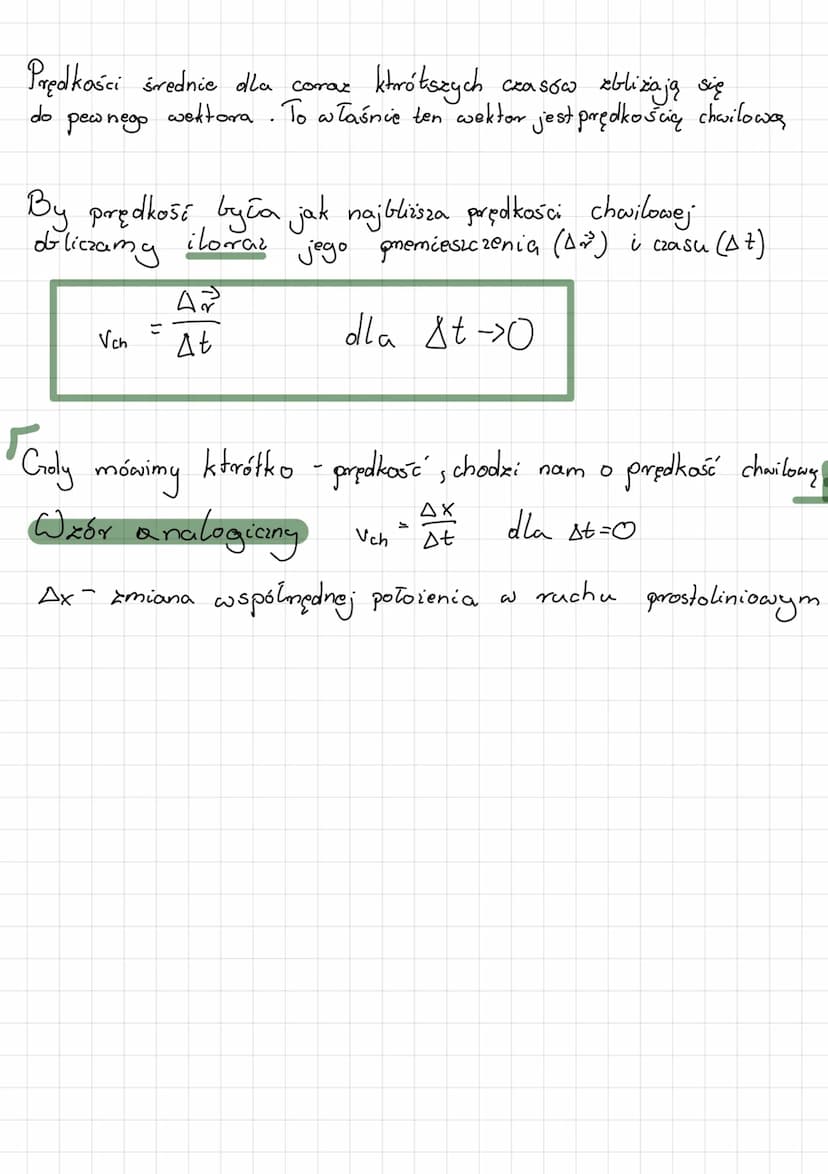 Prędkości średnie dla coraz którótszych czasów zbliżają się
do pewnego wektora. To właśnie ten wektor jest prędkością chwilową
By prędkość była jak najbliższa prędkości chwilowej
obliczamy iloraz jego przemieszczenia (Δr⃗) i czasu (Δt)
v_ch = Δr⃗/Δt dla Δt → 0
Gdy mówimy którótko - prędkość, chodzi nam o prędkość chwilową
Wzór analogiczny v_ch = Δx/Δt dla Δt = 0
Δx - zmiana współrzędnej położenia w ruchu prostoliniowym